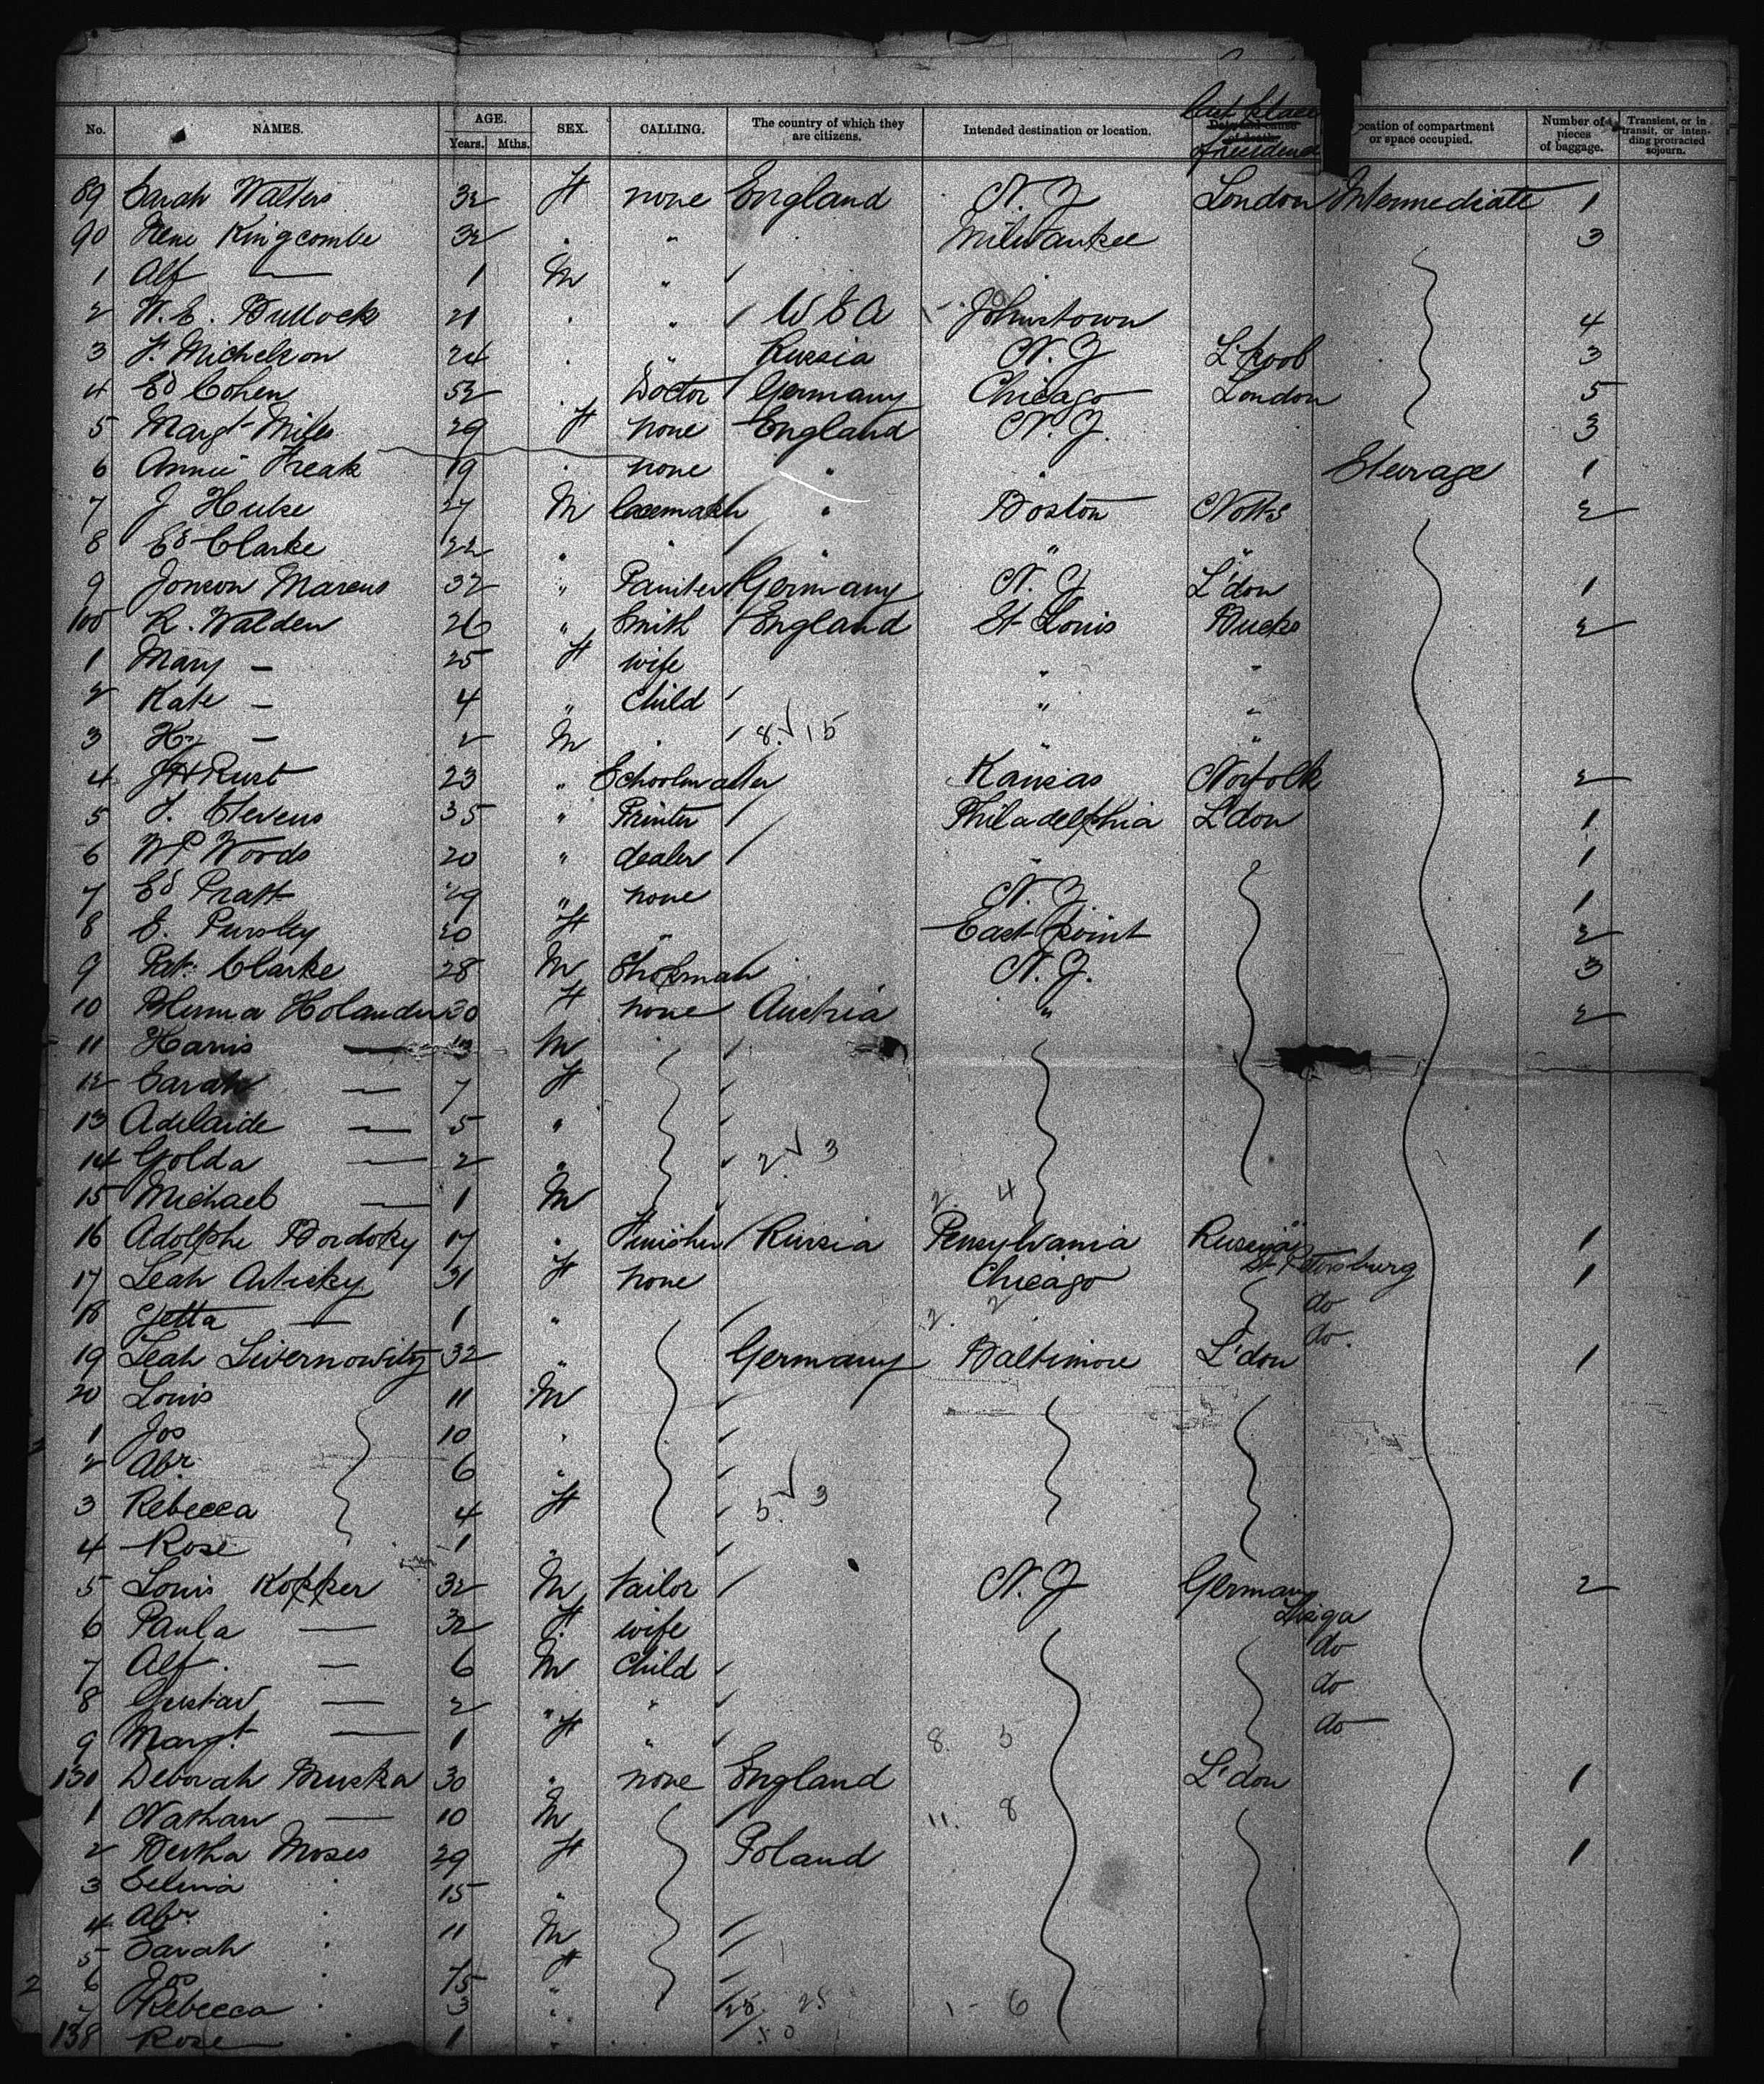 last place
of residence
No. NAMES. AGE. Years. Mths. SEX. CALLING. The country of which they are citizens. Intended destination or location. Date and cause of death. ocation of compartment or space occupied. Number of pieces of baggage. Transient, or in transit, or intending protracted sojourn.
89 Sarah Walters 32 F none England N.Y London Intermediate 1
90 Kingcombe 32 " " Milwaukee 3
1 Alf — 1 M "
2 W.E. Bullock 21 " " USA Johnstown 4
3 F. Michelson 24 " " Russia N.Y L'pool 3
4 Ed Cohen 52 " Doctor Germany Chicago London 5
5 Margt Miles 29 F none England N.Y. 3
6 Annie Freak 19 " none " " Steerage 1
7 J Huke 27 M lacemaker " Boston Notts 2
8 Ed Clarke 22 " " " " "
9 Marcus 32 " Painter Germany N.Y L'don 1
100 R. Walden 26 " Smith England St Louis Bucks 2
1 Mary — 25 F wife " "
2 Kate — 4 " Child " "
3 Hy — 2 M " 8 15 " "
4 JH Rust 23 " Schoolmaster Kansas Norfolk 2
5 J. Stevens 35 " Printer Philadelphia L'don 1
6 WP Woods 20 " dealer " 1
7 Ed Pratt 19 " none N.Y. 1
8 E. Pursley 20 F " East Point 2
9 Pat. Clarke 28 M Shopman N.Y. 3
10 Bluma Holander 30 F none Austria " 2
11 Harris — M
12 Sarah — 7 F
13 Adelaide — 5 "
14 Golda — 2 " 2 3
15 Michael — 1 M 2. 4
16 Adolphe 17 " Finisher Russia Pensylvania Russia 1
17 Leah 31 F none Chicago St Petersburg 1
18 Jetta — 1 " 2. 2 do
do.
19 Leah Livernowitz 32 " Germany Baltimore L'don 1
20 Louis 11 M
1 Jos 10 "
2 Abr. 6 "
3 Rebecca 4 F 5. 3
4 Rose 1 "
5 Louis Kopper 32 M tailor N.Y Germany 2
6 Paula — 32 F wife
7 Alf. — 6 M Child do
8 Gustav — 2 " " do
9 Margt. — 1 F " 8. 3 do
130 Deborah Muska 30 " none England L'don 1
1 Nathan — 10 M 11. 8
2 Bertha Moses 29 F Poland 1
3 Selina " 15 "
4 Abr " 11 M
5 Sarah " F
6 Jos "
7 Rebecca " 3 " 1 - 6
138 Rose " 1 "